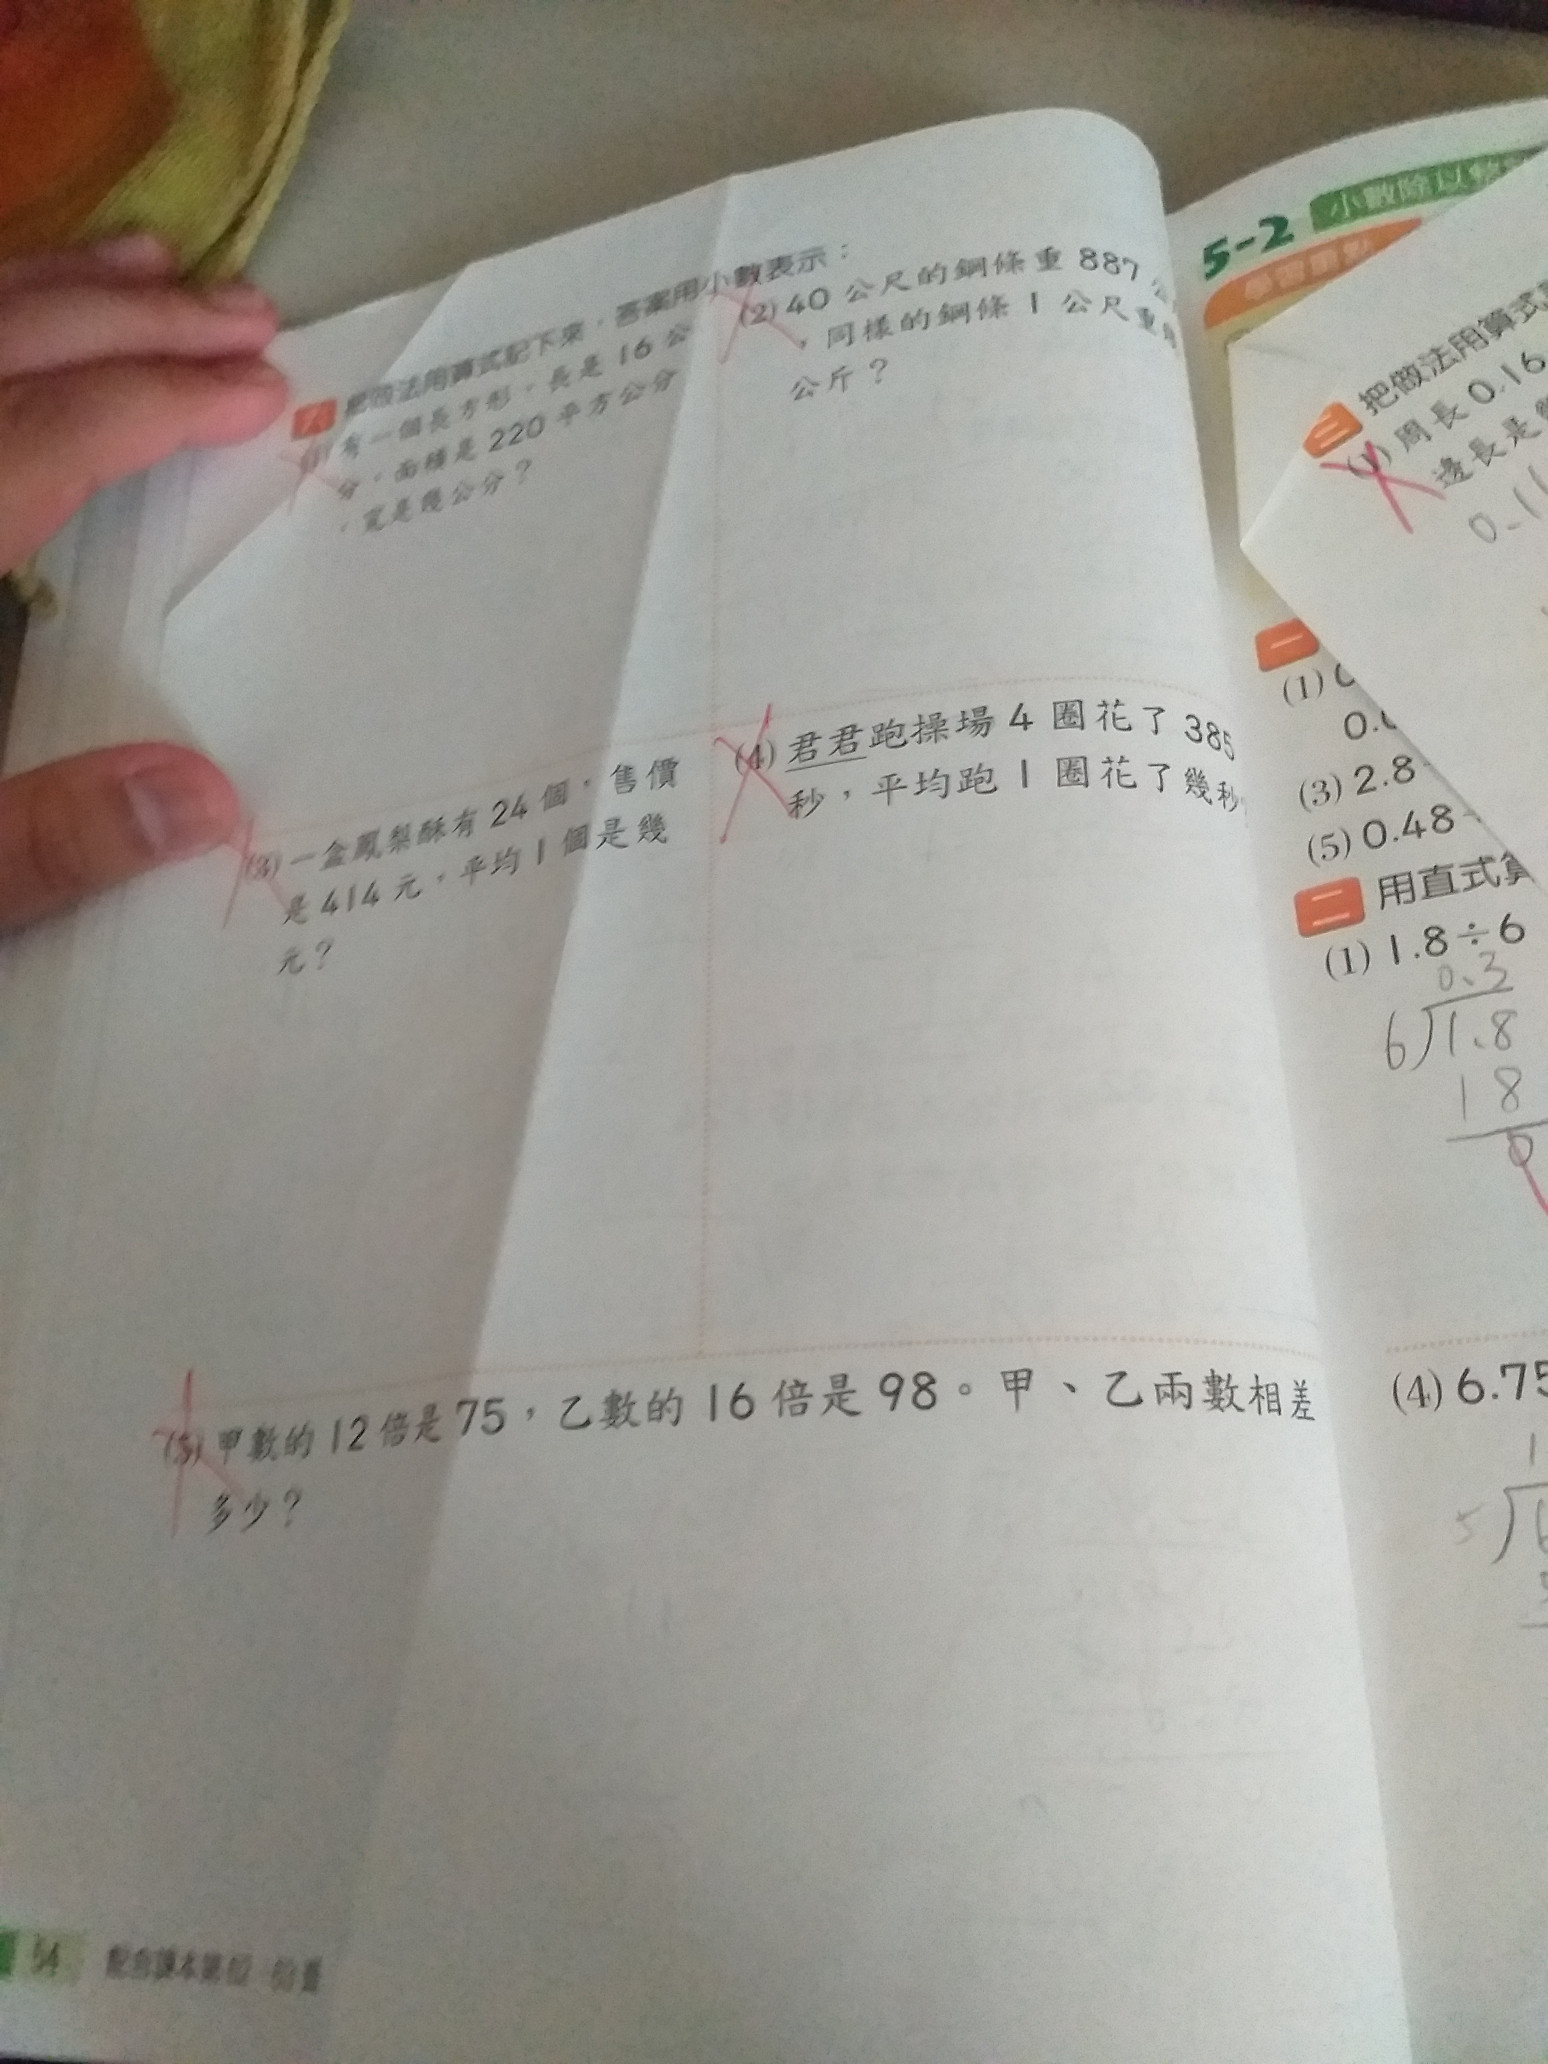 六 把做法用算式記下來,答案用小數表示:
(1) 有一個長方形,長是 16 公
分,面積是 220 平方公分
,寬是幾公分?
(2) 40 公尺的鋼條重 887 公
,同樣的鋼條 1 公尺重
公斤?
(3) 一盒鳳梨酥有 24 個,售價
是 414 元,平均 1 個是幾
元?
(4) 君君跑操場 4 圈花了 385
秒,平均跑 1 圈花了幾秒
(5) 甲數的 12 倍是 75,乙數的 16 倍是 98。甲、乙兩數相差
多少?
54 配合課本第
5-2 小數除以整
學習重點
三 把做法用算式
(1) 周長 0.16
邊長是
0.11
一
(1)
0.
(3) 2.8
(5) 0.48
二 用直式算
(1) 1.8÷6
0.3
6 1.8
18
0
(4) 6.75
1
5